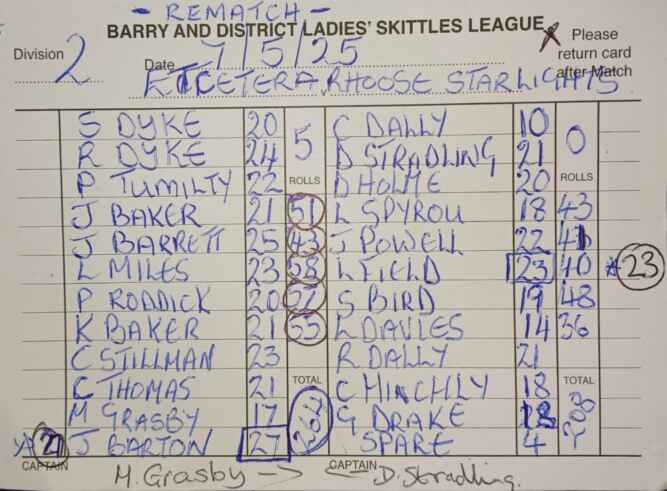 - REMATCH -
BARRY AND DISTRICT LADIES' SKITTLES LEAGUE
Please return card after Match
Division 2 Date 7/5/25
ETCETERA RHOOSE STARLIGHTS
S DYKE 20 5 C DALLY 10 0
R DYKE 24 D STRADLING 21
P TUMILTY 22 ROLLS D HOLME 20 ROLLS
J BAKER 21 51 L SPYROU 18 43
J BARRETT 25 43 J POWELL 22 41
L MILES 23 58 L FIELD 23 40 23
P RODDICK 20 57 S BIRD 19 48
K BAKER 21 55 L DAVIES 14 36
C STILLMAN 23 R DALLY 21
C THOMAS 21 TOTAL C HINCHLY 18 TOTAL
M GRASBY 17 264 G DRAKE 18 208
27 J BARTON 27 SPARE 4
CAPTAIN M. Grasby CAPTAIN D. Stradling.